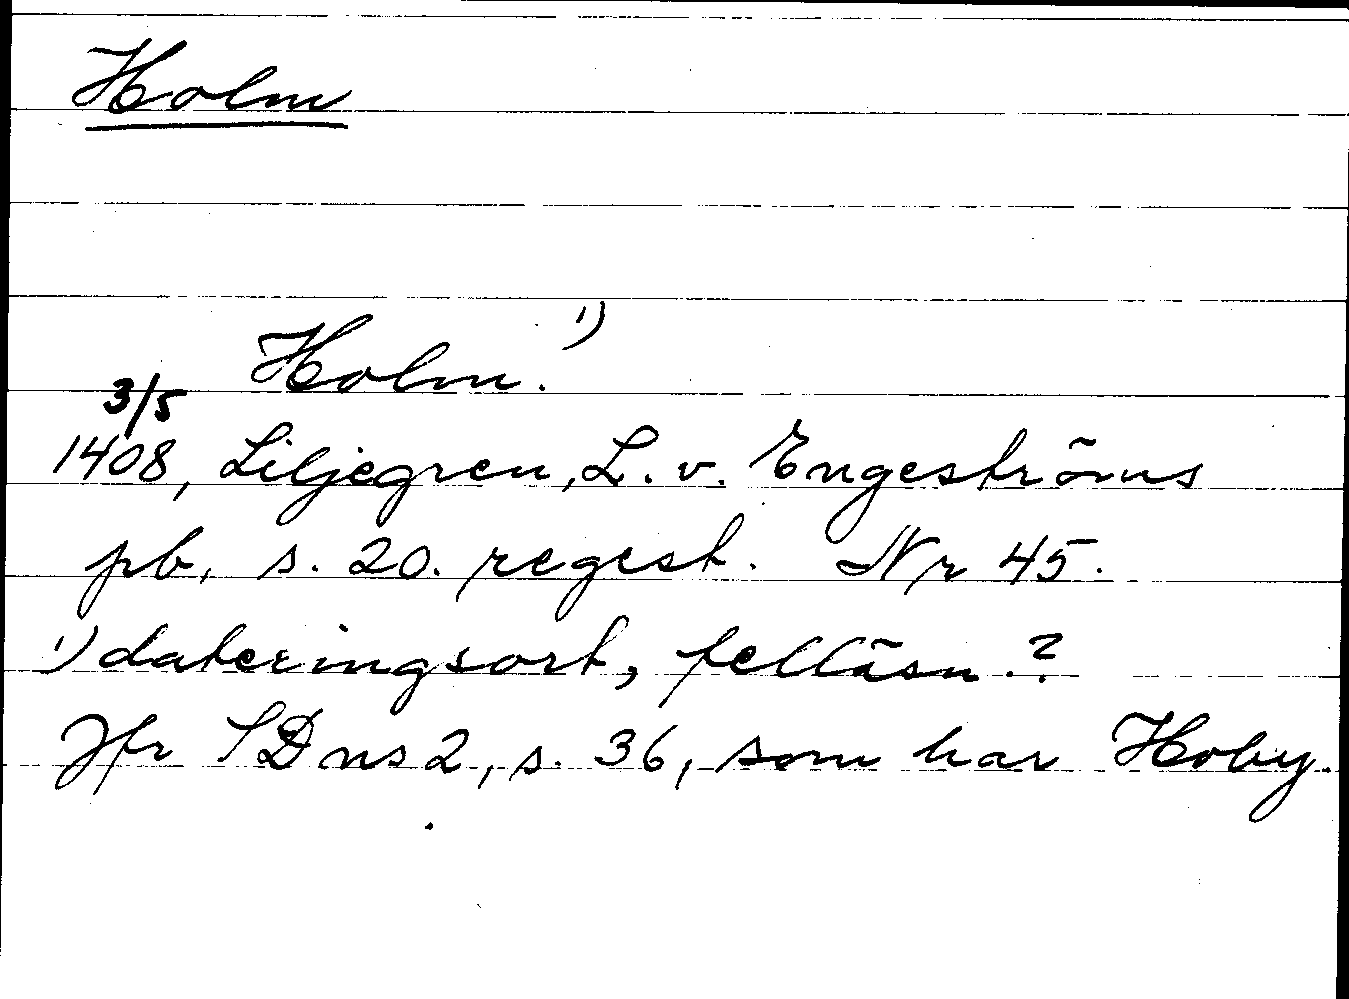 Holm
Holm. 1)
3/5
1408, Liljegren, L. v. Engeströms
pb, s. 20. regest. Nr 45.
1) dateringsort, felläsn.?
Jfr SD ns 2, s. 36, som har Hoby.